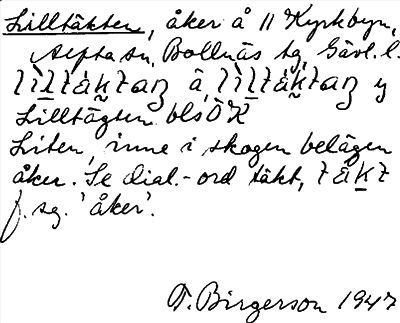 Lilltäkten, åker å 11 Kyrkbyn,
Segersta sn, Bollnäs tg, Gävl. l.
Lilltägten bls ÖK
Liten, inne i skogen belägen
åker. Se dial.-ord täkt,
f. sg. 'åker'.
T. Birgerson 1947